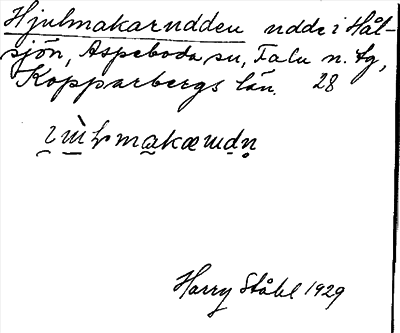 Hjulmakarudden udde i Hål-
sjön, Aspeboda sn, Falu n. tg,
Kopparbergs län. 28
Harry Ståhl 1929